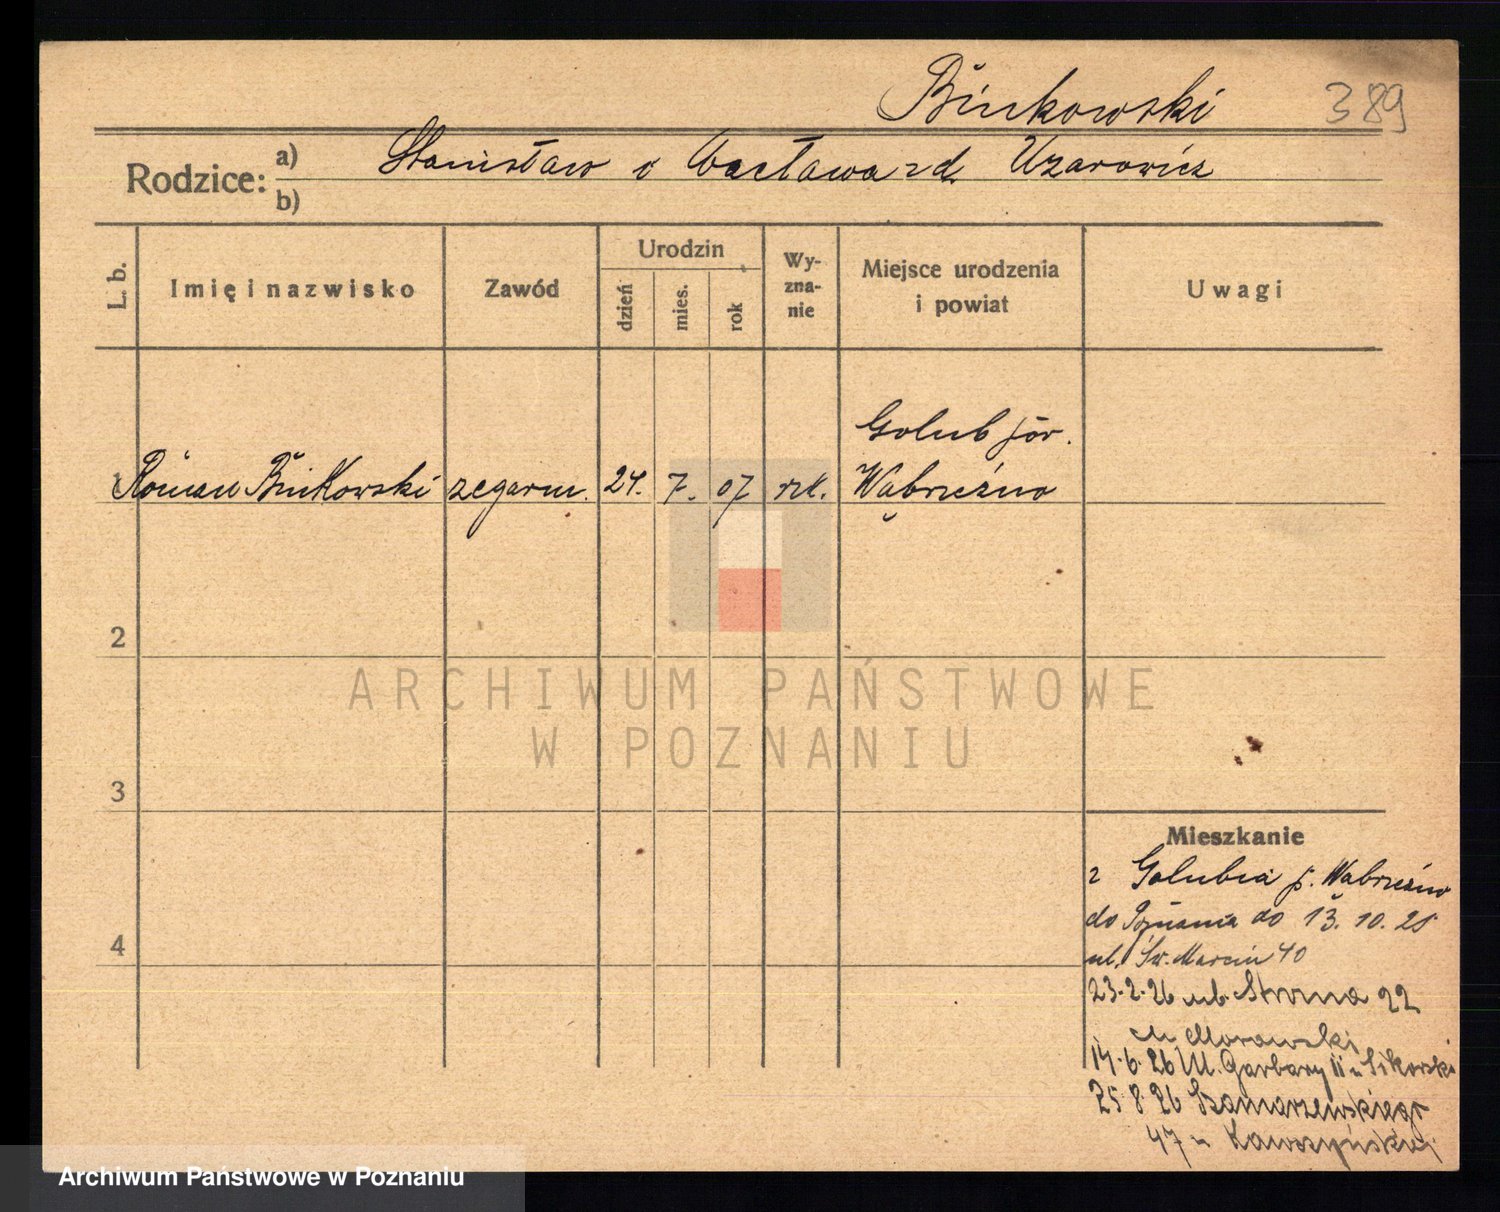 Binkowski 389
Rodzice: a) Stanisław i Wacława zd. Uzarowicz
b)
L. b. Imię i nazwisko Zawód Urodzin dzień mies. rok Wyznanie Miejsce urodzenia i powiat Uwagi
Golub pow.
1 Roman Binkowski zegarm. 24. 7. 07 rzk. Wąbrzeźno
2
ARCHIWUM PAŃSTWOWE
W POZNANIU
3
Mieszkanie
z Golubia p. Wąbrzeźno
do Poznania do 13. 10. 25
4
ul. Św. Marcin 40
23-2-26 ul. Stroma 22
u Morawski
14-6-26 Ul. Garbary II u Sikorski
25 8 26 Szamarzewskiego
47 u
Archiwum Państwowe w Poznaniu